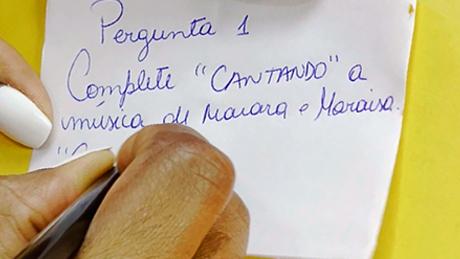 Pergunta 1
Complete "CANTANDO" a
música de Maiara e Maraisa.